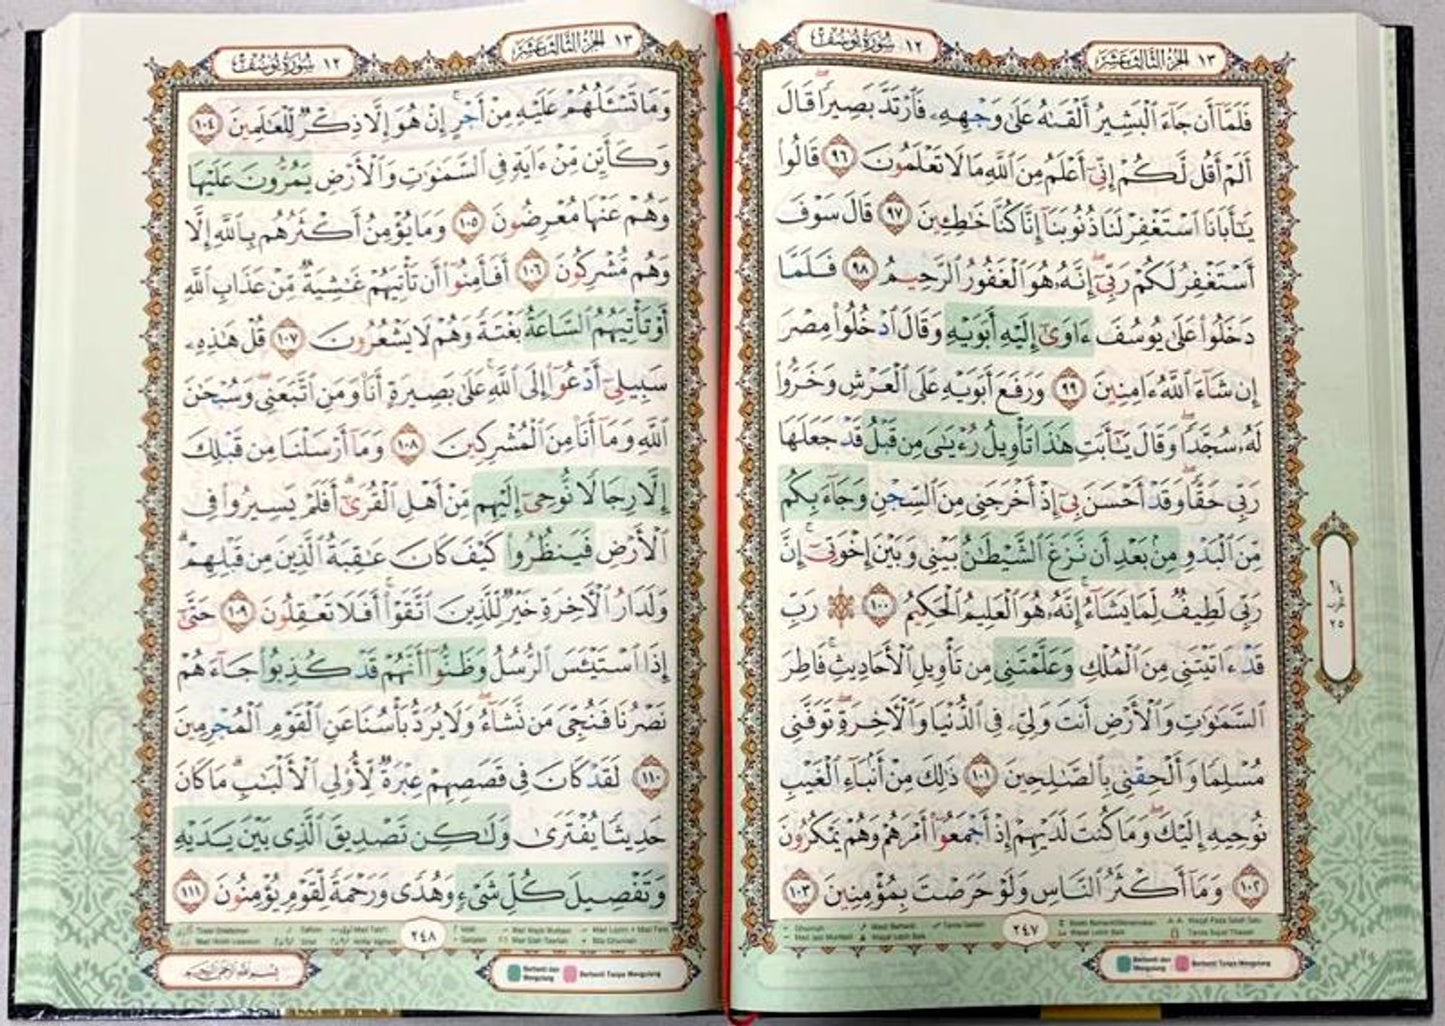 ١٢ سُورَةُ يُوسُفَ
١٣ الجُزْءُ الثَّالِثَ عَشَرَ
فَلَمَّآ أَن جَآءَ ٱلْبَشِيرُ أَلْقَىٰهُ عَلَىٰ وَجْهِهِۦ فَٱرْتَدَّ بَصِيرًا ۖ قَالَ
أَلَمْ أَقُل لَّكُمْ إِنِّىٓ أَعْلَمُ مِنَ ٱللَّهِ مَا لَا تَعْلَمُونَ ٩٦ قَالُوا۟
يَـٰٓأَبَانَا ٱسْتَغْفِرْ لَنَا ذُنُوبَنَآ إِنَّا كُنَّا خَـٰطِـِٔينَ ٩٧ قَالَ سَوْفَ
أَسْتَغْفِرُ لَكُمْ رَبِّىٓ ۖ إِنَّهُۥ هُوَ ٱلْغَفُورُ ٱلرَّحِيمُ ٩٨ فَلَمَّا
دَخَلُوا۟ عَلَىٰ يُوسُفَ ءَاوَىٰٓ إِلَيْهِ أَبَوَيْهِ وَقَالَ ٱدْخُلُوا۟ مِصْرَ
إِن شَآءَ ٱللَّهُ ءَامِنِينَ ٩٩ وَرَفَعَ أَبَوَيْهِ عَلَى ٱلْعَرْشِ وَخَرُّوا۟
لَهُۥ سُجَّدًا ۖ وَقَالَ يَـٰٓأَبَتِ هَـٰذَا تَأْوِيلُ رُءْيَـٰىَ مِن قَبْلُ قَدْ جَعَلَهَا
رَبِّى حَقًّا ۖ وَقَدْ أَحْسَنَ بِىٓ إِذْ أَخْرَجَنِى مِنَ ٱلسِّجْنِ وَجَآءَ بِكُم
مِّنَ ٱلْبَدْوِ مِنۢ بَعْدِ أَن نَّزَغَ ٱلشَّيْطَـٰنُ بَيْنِى وَبَيْنَ إِخْوَتِىٓ ۚ إِنَّ
رَبِّى لَطِيفٌ لِّمَا يَشَآءُ ۚ إِنَّهُۥ هُوَ ٱلْعَلِيمُ ٱلْحَكِيمُ ١٠٠ ۞ رَبِّ
قَدْ ءَاتَيْتَنِى مِنَ ٱلْمُلْكِ وَعَلَّمْتَنِى مِن تَأْوِيلِ ٱلْأَحَادِيثِ ۚ فَاطِرَ
ٱلسَّمَـٰوَٰتِ وَٱلْأَرْضِ أَنتَ وَلِىِّۦ فِى ٱلدُّنْيَا وَٱلْـَٔاخِرَةِ ۖ تَوَفَّنِى
مُسْلِمًا وَأَلْحِقْنِى بِٱلصَّـٰلِحِينَ ١٠١ ذَٰلِكَ مِنْ أَنۢبَآءِ ٱلْغَيْبِ
نُوحِيهِ إِلَيْكَ ۖ وَمَا كُنتَ لَدَيْهِمْ إِذْ أَجْمَعُوٓا۟ أَمْرَهُمْ وَهُمْ يَمْكُرُونَ
١٠٢ وَمَآ أَكْثَرُ ٱلنَّاسِ وَلَوْ حَرَصْتَ بِمُؤْمِنِينَ ١٠٣
٢٤٧
Berhenti dan Mengulang
Berhenti Tanpa Mengulang
١٢ سُورَةُ يُوسُفَ
١٣ الجُزْءُ الثَّالِثَ عَشَرَ
وَمَا تَسْـَٔلُهُمْ عَلَيْهِ مِنْ أَجْرٍ ۚ إِنْ هُوَ إِلَّا ذِكْرٌ لِّلْعَـٰلَمِينَ ١٠٤
وَكَأَيِّن مِّنْ ءَايَةٍ فِى ٱلسَّمَـٰوَٰتِ وَٱلْأَرْضِ يَمُرُّونَ عَلَيْهَا
وَهُمْ عَنْهَا مُعْرِضُونَ ١٠٥ وَمَا يُؤْمِنُ أَكْثَرُهُم بِٱللَّهِ إِلَّا
وَهُم مُّشْرِكُونَ ١٠٦ أَفَأَمِنُوٓا۟ أَن تَأْتِيَهُمْ غَـٰشِيَةٌ مِّنْ عَذَابِ ٱللَّهِ
أَوْ تَأْتِيَهُمُ ٱلسَّاعَةُ بَغْتَةً وَهُمْ لَا يَشْعُرُونَ ١٠٧ قُلْ هَـٰذِهِۦ
سَبِيلِىٓ أَدْعُوٓا۟ إِلَى ٱللَّهِ ۚ عَلَىٰ بَصِيرَةٍ أَنَا۠ وَمَنِ ٱتَّبَعَنِى ۖ وَسُبْحَـٰنَ
ٱللَّهِ وَمَآ أَنَا۠ مِنَ ٱلْمُشْرِكِينَ ١٠٨ وَمَآ أَرْسَلْنَا مِن قَبْلِكَ
إِلَّا رِجَالًا نُّوحِىٓ إِلَيْهِم مِّنْ أَهْلِ ٱلْقُرَىٰٓ ۗ أَفَلَمْ يَسِيرُوا۟ فِى
ٱلْأَرْضِ فَيَنظُرُوا۟ كَيْفَ كَانَ عَـٰقِبَةُ ٱلَّذِينَ مِن قَبْلِهِمْ ۗ
وَلَدَارُ ٱلْـَٔاخِرَةِ خَيْرٌ لِّلَّذِينَ ٱتَّقَوْا۟ ۗ أَفَلَا تَعْقِلُونَ ١٠٩ حَتَّىٰٓ
إِذَا ٱسْتَيْـَٔسَ ٱلرُّسُلُ وَظَنُّوٓا۟ أَنَّهُمْ قَدْ كُذِبُوا۟ جَآءَهُمْ
نَصْرُنَا فَنُجِّىَ مَن نَّشَآءُ ۖ وَلَا يُرَدُّ بَأْسُنَا عَنِ ٱلْقَوْمِ ٱلْمُجْرِمِينَ
١١٠ لَقَدْ كَانَ فِى قَصَصِهِمْ عِبْرَةٌ لِّأُو۟لِى ٱلْأَلْبَـٰبِ ۗ مَا كَانَ
حَدِيثًا يُفْتَرَىٰ وَلَـٰكِن تَصْدِيقَ ٱلَّذِى بَيْنَ يَدَيْهِ
وَتَفْصِيلَ كُلِّ شَىْءٍ وَهُدًى وَرَحْمَةً لِّقَوْمٍ يُؤْمِنُونَ ١١١
٢٤٨
بِسْمِ اللَّهِ الرَّحْمَٰنِ الرَّحِيمِ
Berhenti dan Mengulang
Berhenti Tanpa Mengulang